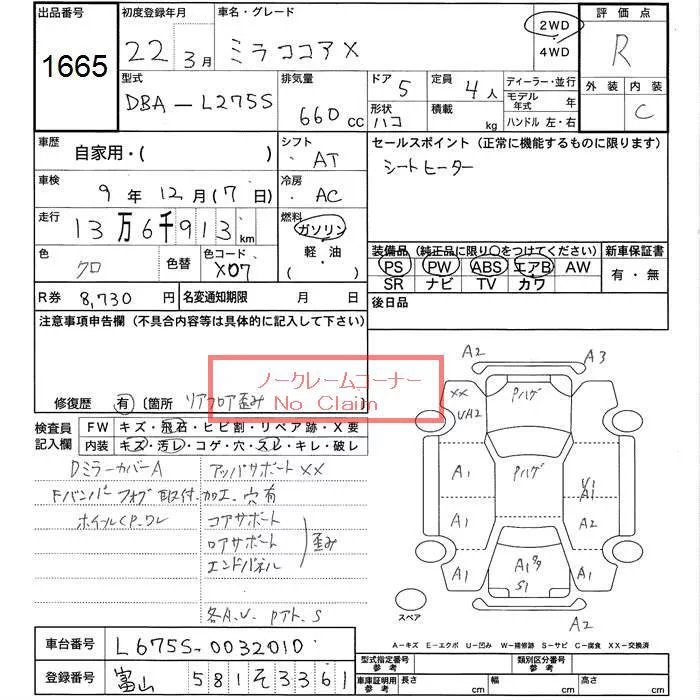 出品番号 初度登録年月 車名・グレード 評価点
1665 22年 3月 ミラココアX 2WD 4WD R
型式 排気量 ドア 定員 ディーラー・並行 外装 内装
DBA-L275S 660cc 5 4人 モデル年式 年 C
形状 ハコ 積載 kg ハンドル 左・右
車歴 シフト セールスポイント (正常に機能するものに限ります)
自家用・( ) AT シートヒーター
車検 冷房
9年12月(7日) AC
走行 燃料
13万6千913km ガソリン 軽・油 ・( )
装備品 (純正品に限り○をつけてください) 新車保証書
色 色替 色コード
クロ X07
PS PW ABS エアB AW 有・無
SR ナビ TV カワ
R券 8,730円 名変通知期限 月 日 後日品
注意事項申告欄 (不具合内容等は具体的に記入して下さい)
ノークレームコーナー
No Claim
修復歴 有 〔箇所 リアフロア歪み 〕
検査員記入欄 FW キズ・飛石・ヒビ割・リペア跡・X要
内装 キズ・汚レ・コゲ・穴・スレ・キレ・破レ
Dミラーカバー A アッパサポート XX
Fバンパーフォグ取付加工.穴有
ホイルCP.ワレ コアサポート
ロアサポート 歪み
エンドパネル
各A.U. Pアト.S
A2 A3
XX Pハゲ
UA2
A1 Pハゲ U1
A1
A1 A2
A1 A1 S1 A1
A2
スペア
A-キズ E-エクボ U-凹み W-補修跡 S-サビ C-腐食 XX-交換済
車台番号 L675S-0032010
型式指定番号 参考 類別区分番号 参考
登録番号 富山 581 そ 3361
車庫証明用 参考 長さ cm 幅 cm 高さ cm